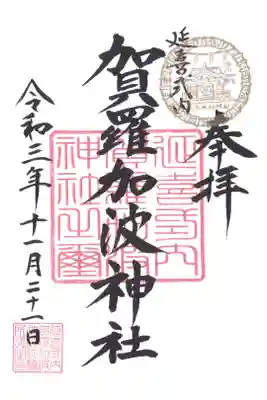 延喜式内
奉拝
賀羅加波神社
令和三年十一月二十一日
延喜式内
賀羅加波
神社之璽